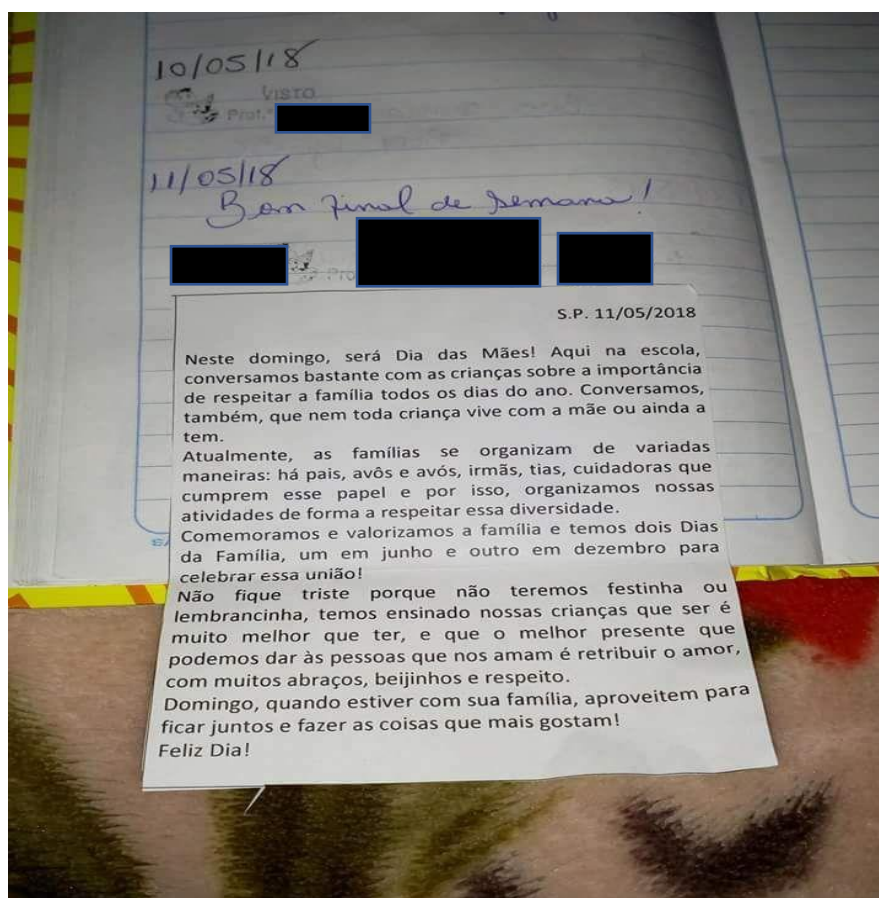 10/05/18
VISTO
Prof.ª
11/05/18
Bom final de semana!
S.P. 11/05/2018
Neste domingo, será Dia das Mães! Aqui na escola,
conversamos bastante com as crianças sobre a importância
de respeitar a família todos os dias do ano. Conversamos,
também, que nem toda criança vive com a mãe ou ainda a
tem.
Atualmente, as famílias se organizam de variadas
maneiras: há pais, avôs e avós, irmãs, tias, cuidadoras que
cumprem esse papel e por isso, organizamos nossas
atividades de forma a respeitar essa diversidade.
Comemoramos e valorizamos a família e temos dois Dias
da Família, um em junho e outro em dezembro para
celebrar essa união!
Não fique triste porque não teremos festinha ou
lembrancinha, temos ensinado nossas crianças que ser é
muito melhor que ter, e que o melhor presente que
podemos dar às pessoas que nos amam é retribuir o amor,
com muitos abraços, beijinhos e respeito.
Domingo, quando estiver com sua família, aproveitem para
ficar juntos e fazer as coisas que mais gostam!
Feliz Dia!